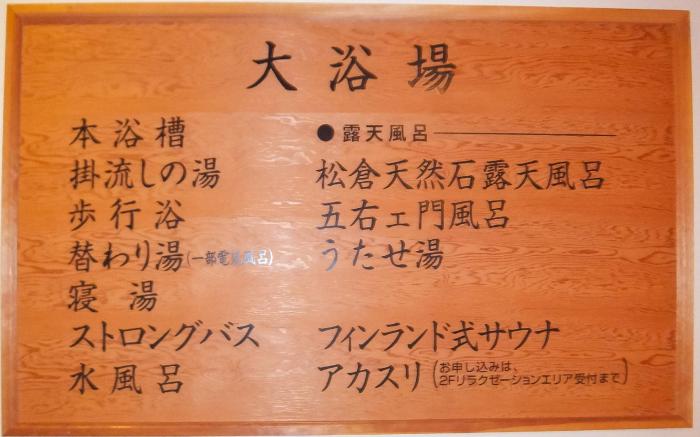 大浴場
本浴槽
掛流しの湯
歩行浴
替わり湯(一部電気風呂)
寝湯
ストロングバス
水風呂
●露天風呂
松倉天然石露天風呂
五右ェ門風呂
うたせ湯
フィンランド式サウナ
アカスリ(お申し込みは、
2Fリラクゼーションエリア受付まで)